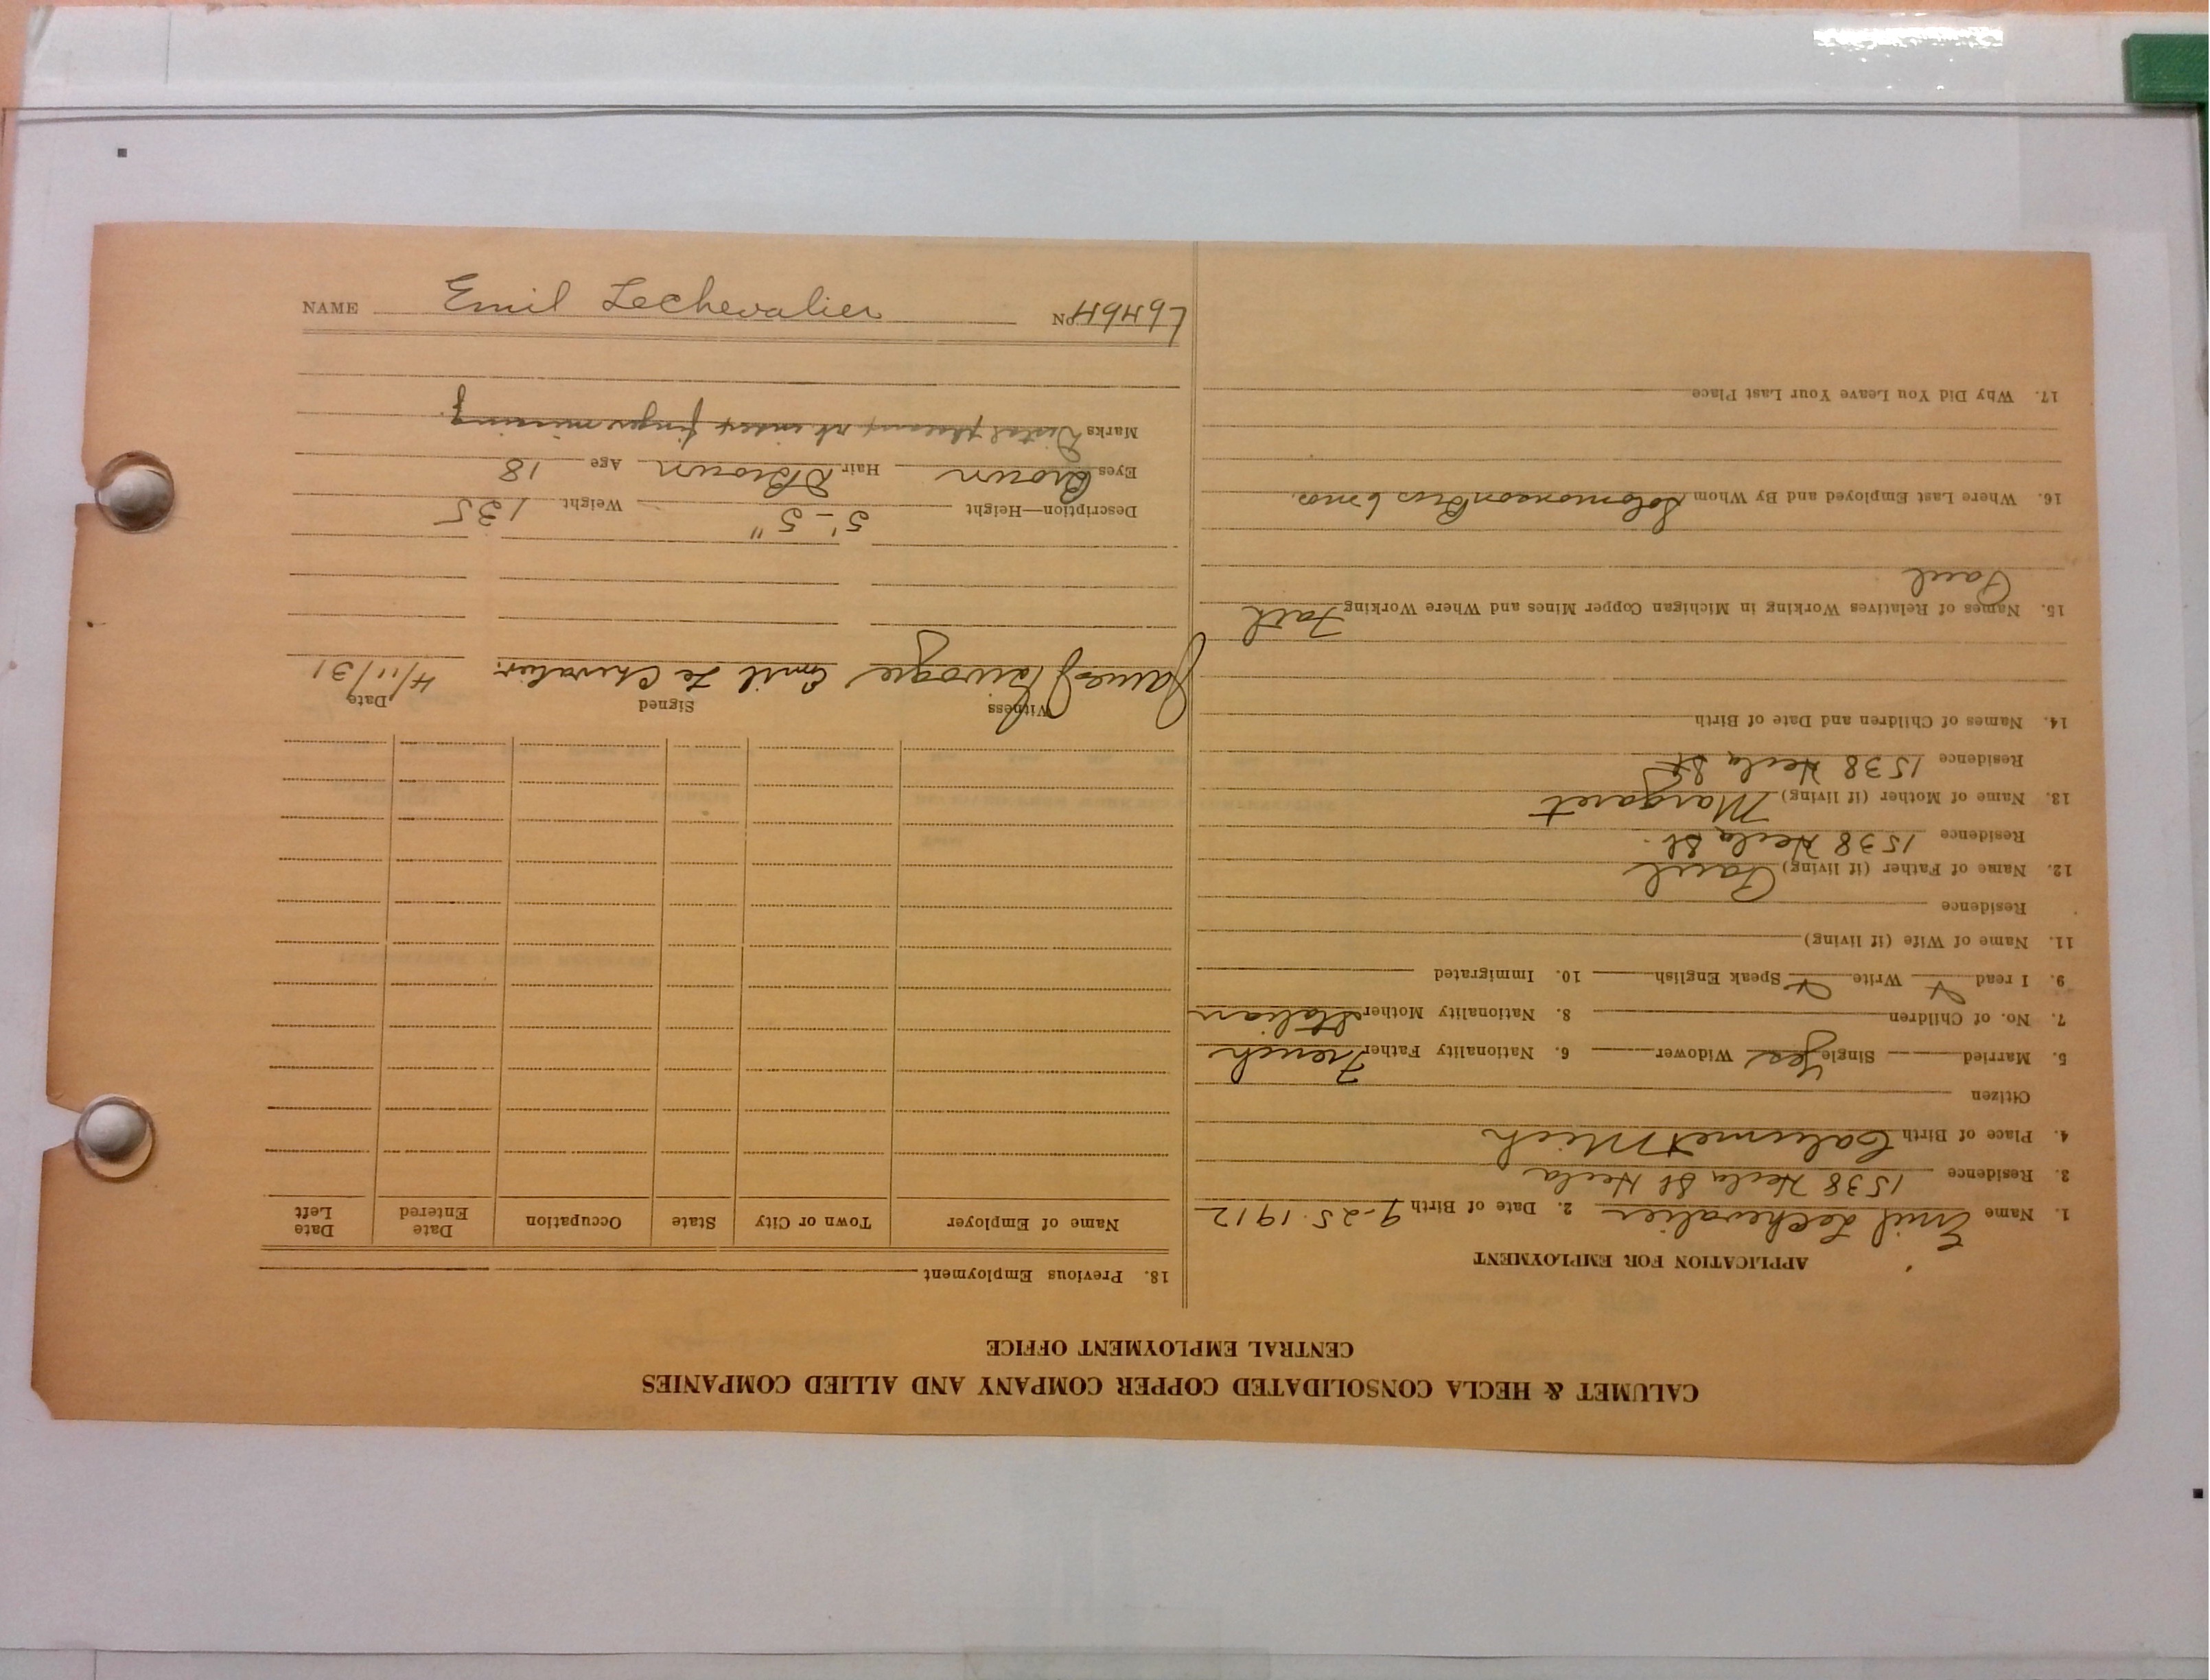 CALUMET & HECLA CONSOLIDATED COPPER COMPANY AND ALLIED COMPANIES
CENTRAL EMPLOYMENT OFFICE
APPLICATION FOR EMPLOYMENT
1. Name Emil Lechevalier 2. Date of Birth 9-25-1912
3. Residence 1538 Hecla St Hecla
4. Place of Birth Calumet Mich
Citizen
5. Married Single Yes Widower 6. Nationality Father French
7. No. of Children 8. Nationality Mother Italian
9. I read Write Speak English 10. Immigrated
11. Name of Wife (if living)
Residence
12. Name of Father (if living) Paul
Residence 1538 Hecla St.
13. Name of Mother (if living) Margaret
Residence 1538 Hecla St
14. Names of Children and Date of Birth
15. Names of Relatives Working in Michigan Copper Mines and Where Working Fath
Paul
16. Where Last Employed and By Whom Solomonson Bros 6 mos.
17. Why Did You Leave Your Last Place
18. Previous Employment
Name of Employer Town or City State Occupation Date Entered Date Left
Witness Signed Date
James Emil Le Chevalier 4/11/31
Description—Height 5'-5" Weight 135
Eyes Brown Hair DBrown Age 18
Marks Distal rt index finger missing
NAME Emil Lechevalier
No.